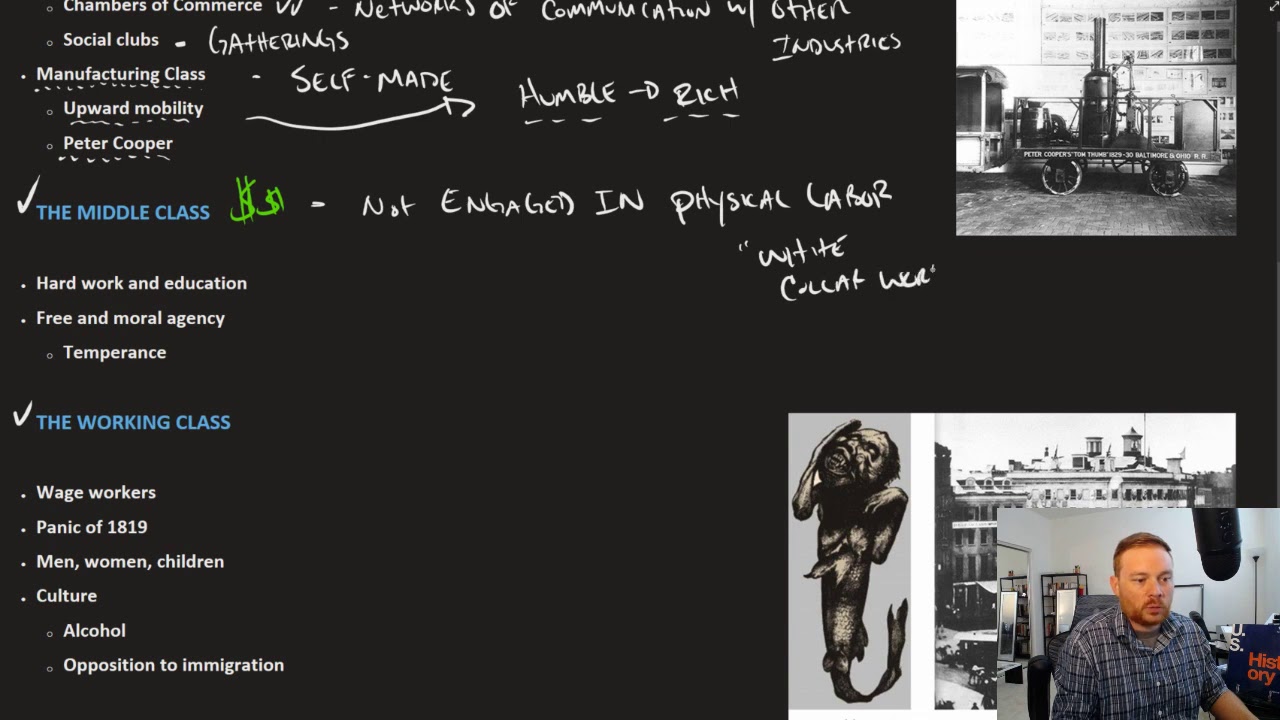 Chambers of Commerce - NETWORKS OF COMMUNICATION W/ OTHER
INDUSTRIES
Social clubs - GATHERINGS
Manufacturing Class - SELF-MADE
HUMBLE → RICH
Upward mobility
Peter Cooper
PETER COOPER'S "TOM THUMB" 1829-30 BALTIMORE & OHIO R. R.
THE MIDDLE CLASS $$ - NOT ENGAGED IN PHYSICAL LABOR
"WHITE
COLLAR WOR
Hard work and education
Free and moral agency
Temperance
THE WORKING CLASS
Wage workers
Panic of 1819
Men, women, children
Culture
Alcohol
Opposition to immigration
U.
S.
Hist
ory